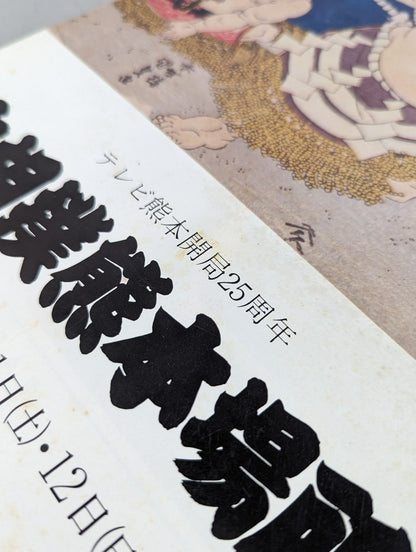 テレビ熊本開局25周年
相撲熊本場所
日(土)・12日(日